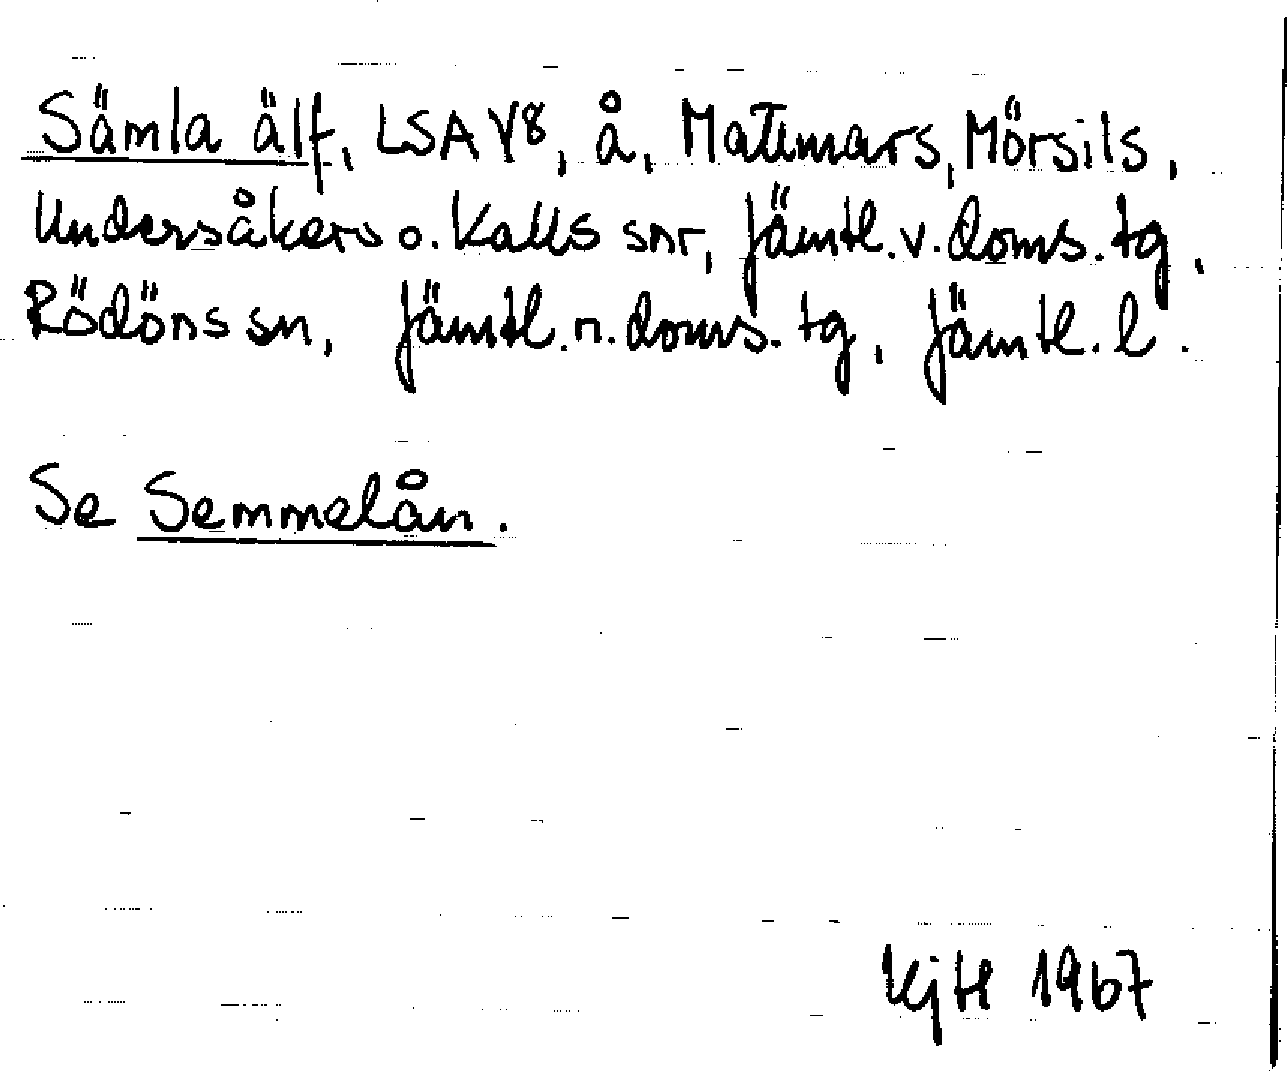 Sämla älf, LSA V8, å, Mattmars, Mörsils,
Undersåkers o. Kalls snr, Jämtl. v. doms. tg,
Rödöns sn, Jämtl. n. doms. tg, Jämtl. l.
Se Semmelån.
KjH 1967